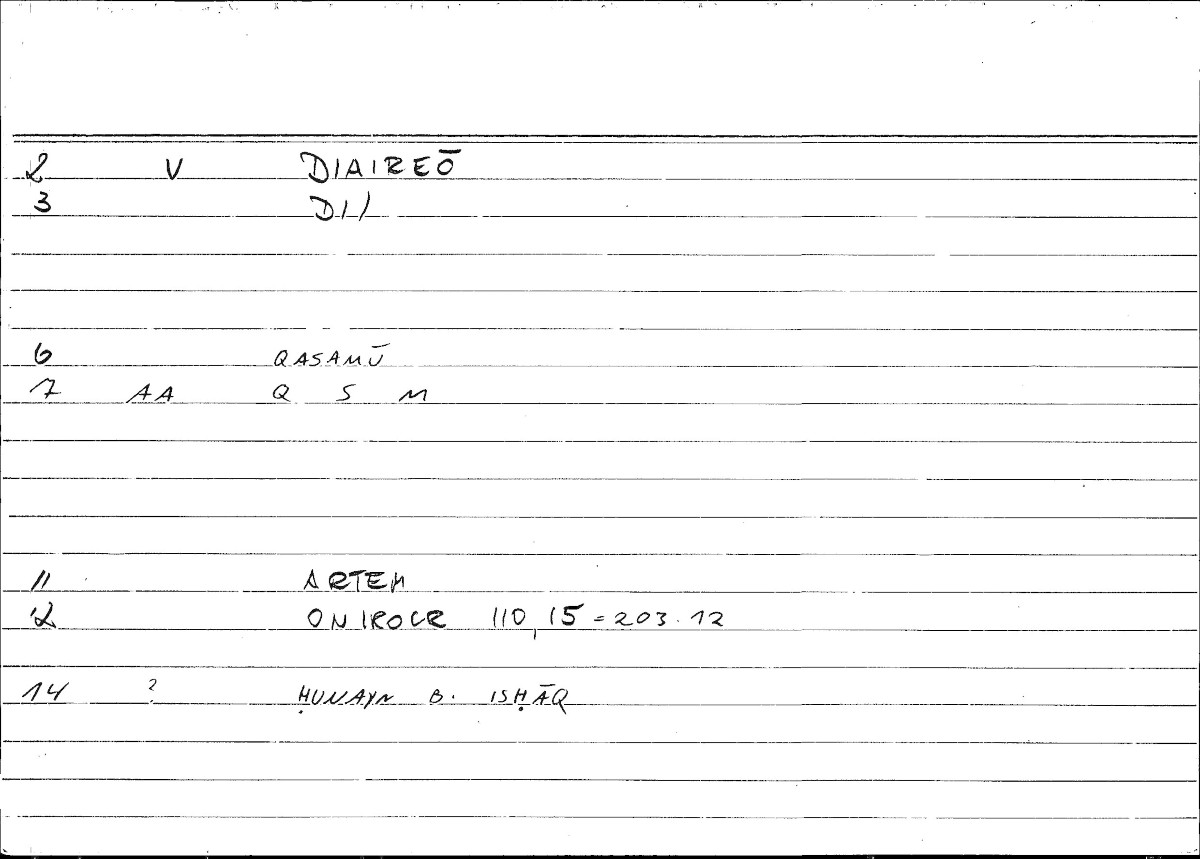 2 V DIAIREŌ
3 DI/
6 QASAMŪ
7 AA Q S M
11 ARTEM
12 ONIROCR 110,15 = 203.12
14 ? ḤUNAYN B. ISḤĀQ